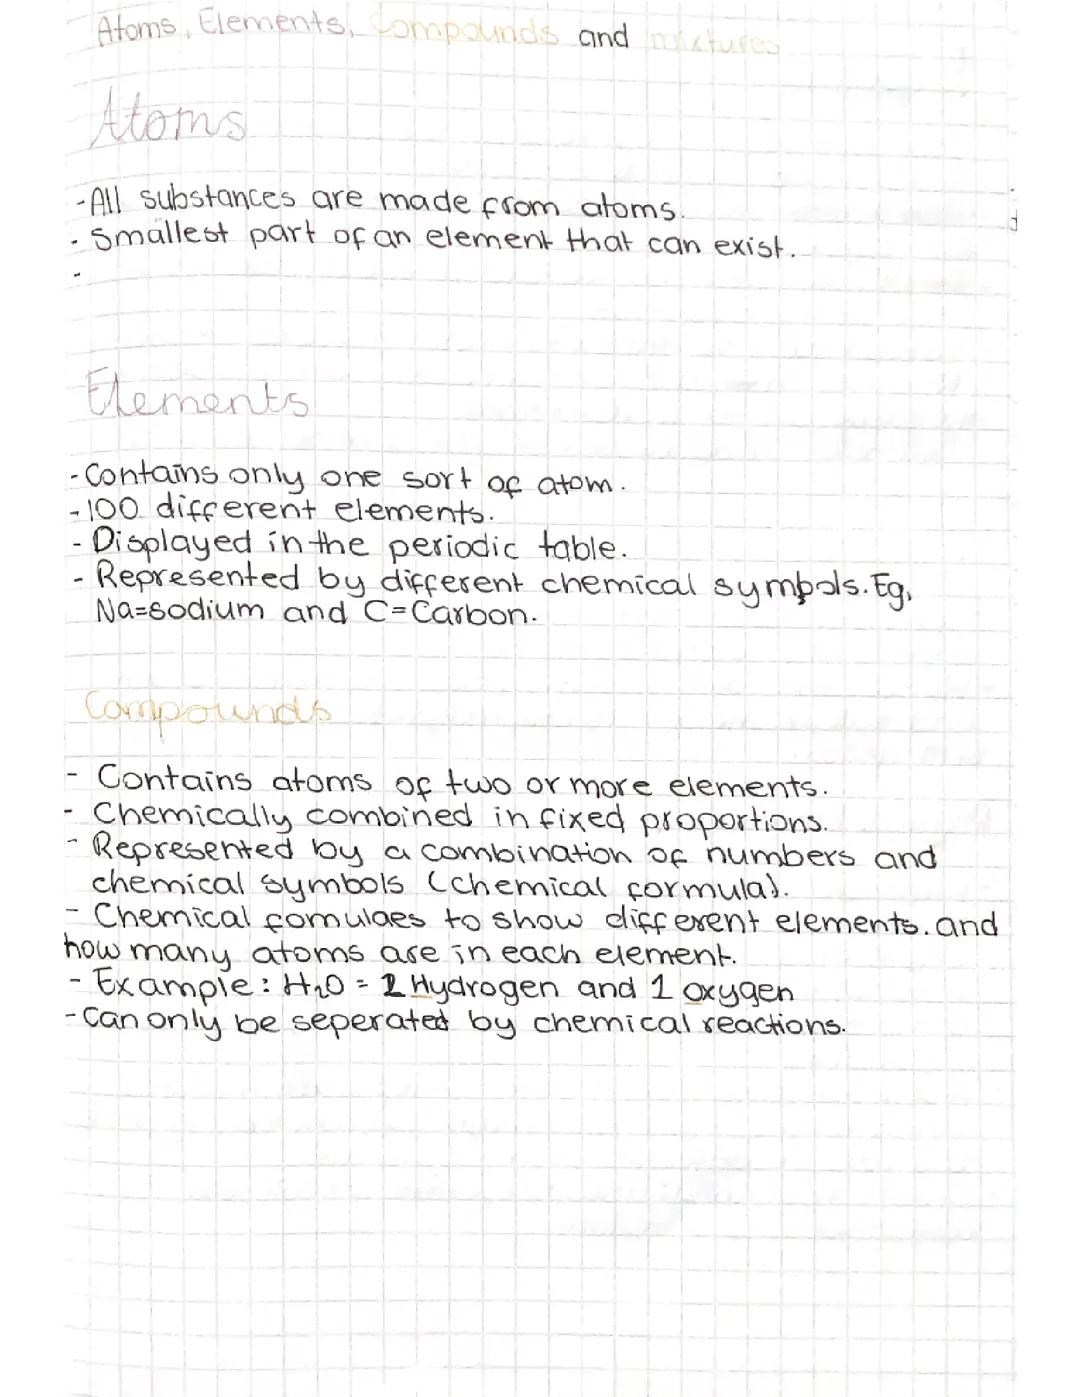 Atoms, Elements, Compounds and mixtures
Atoms
-All substances are made from atoms.
- Smallest part of an element that can exist.
-
Elements
-Contains only one sort of atom.
-100 different elements.
- Displayed in the periodic table.
- Represented by different chemical symbols. Eg,
Na=sodium and C=Carbon.
Compounds
- Contains atoms of two or more elements.
- Chemically combined in fixed proportions.
- Represented by a combination of numbers and
chemical symbols (chemical formula).
- Chemical fomulaes to show different elements. and
how many atoms are in each element.
- Example: H₂O = 2 Hydrogen and 1 oxygen
-Can only be seperated by chemical reactions.